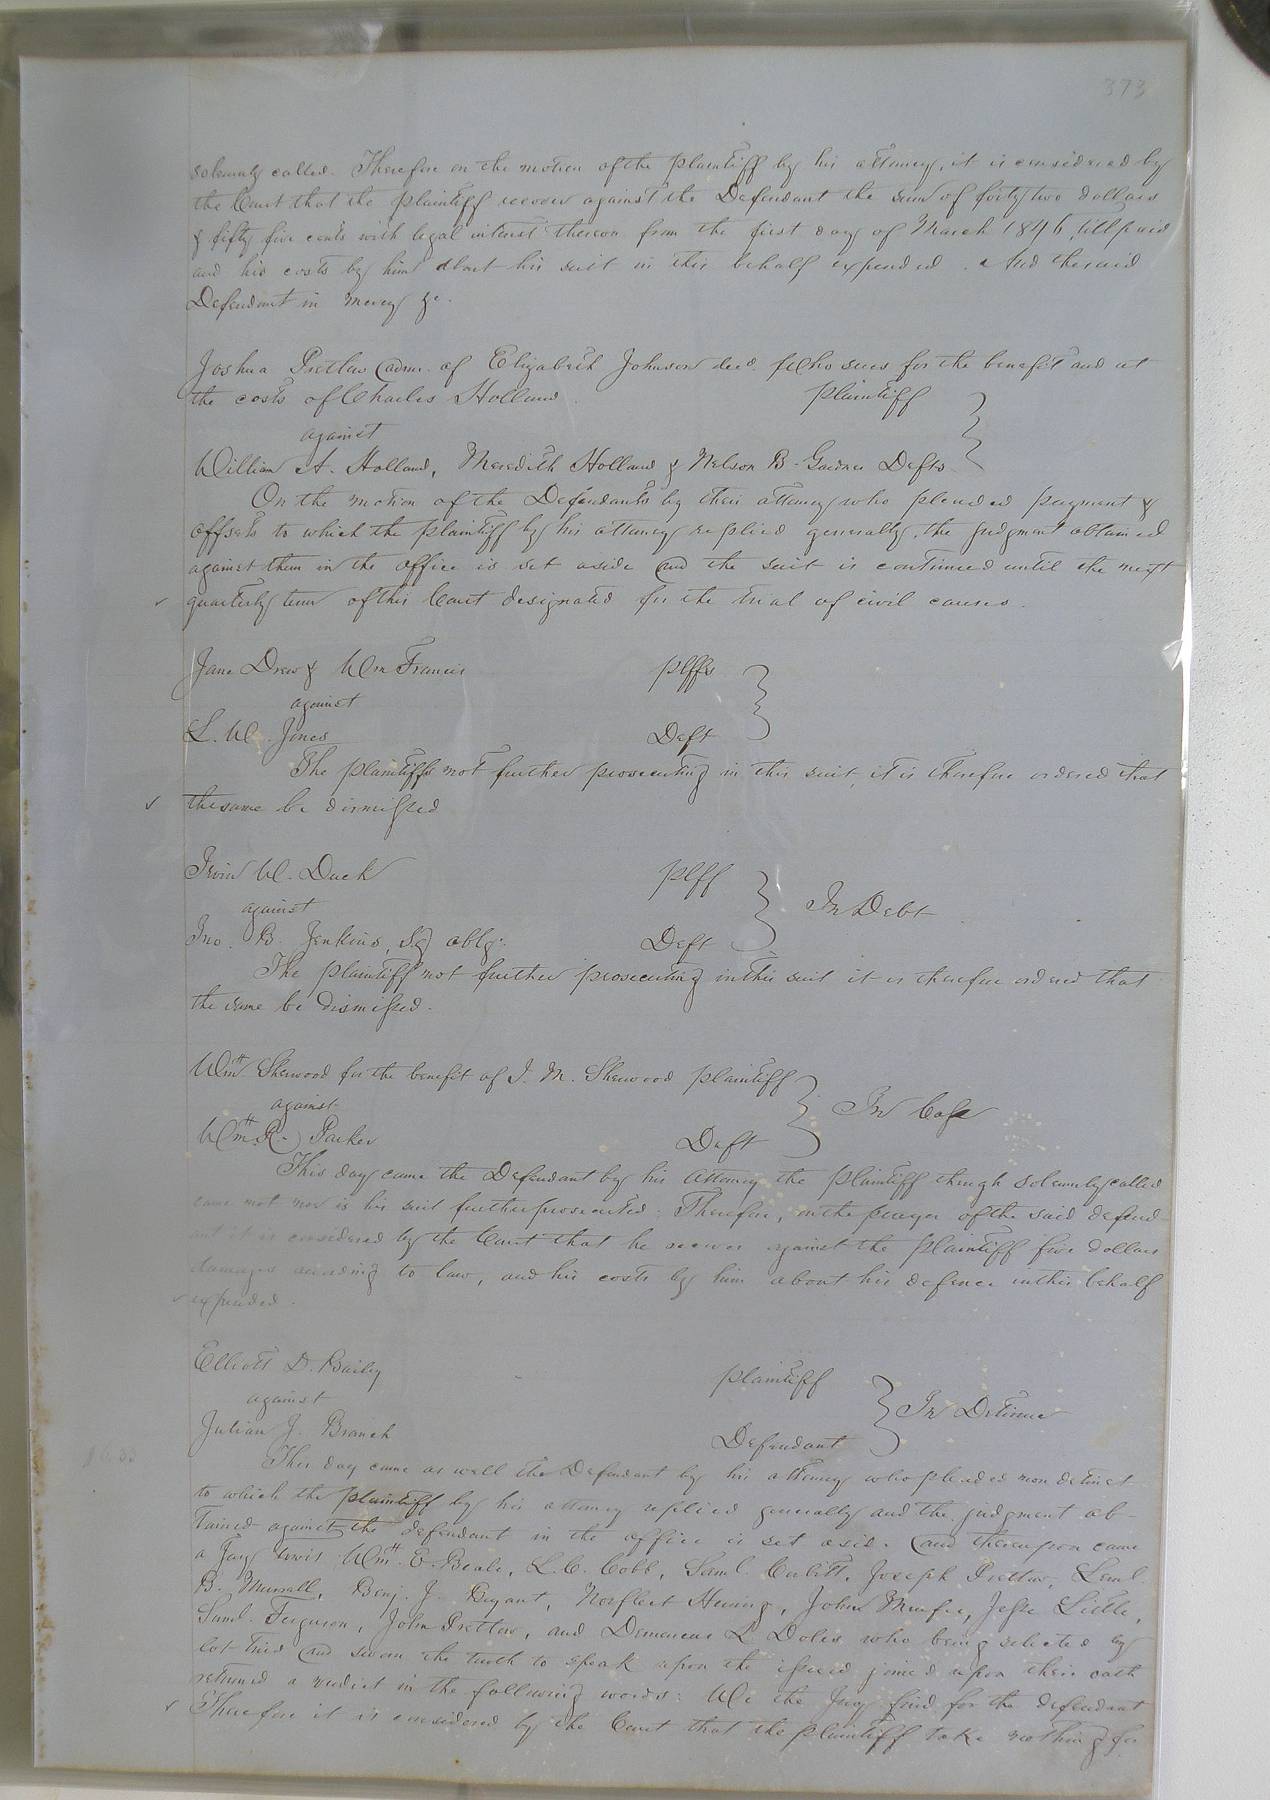 373
solemnly called. Therefore on the motion of the plaintiff by his attorney, it is considered by
the Court that the plaintiff recover against the Defendant the sum of forty two dollars
& fifty five cents with legal interest thereon from the first day of March 1846, till paid
and his costs by him about his suit in this behalf expended. And the said
Defendant in mercy &c.
Joshua Pretlow admr. of Elizabeth Johnson decd. who sues for the benefit and at
the costs of Charles Holland. plaintiff
against
William A. Holland, Meredith Holland & Nelson B. Gardner Defts
On the motion of the Defendants by their attorney who pleaded payment &
offsets to which the plaintiff by his attorney replied generally, the judgment obtained
against them in the office is set aside and the suit is continued until the next
quarterly term of this Court designated for the trial of civil causes.
Jane Drew & Wm Francis plffs
against
L. W. Jones Deft
The plaintiffs not further prosecuting in this suit, it is therefore ordered that
the same be dismissed
Irvin W. Duck plff
against In Debt
Jno. B. Jenkins, Sg oblgr. Deft
The plaintiff not further prosecuting in this suit it is therefore ordered that
the same be dismissed.
Wm. Sherwood for the benefit of J. M. Sherwood plaintiff
against In Case
Wm. R. Parker Deft
This day came the Defendant by his attorney the plaintiff though solemnly called
came not nor is his suit further prosecuted: Therefore, on the prayer of the said defend-
ant it is considered by the Court that he recover against the plaintiff five dollars
damages according to law, and his costs by him about his defence in this behalf
expended.
Elliott D. Baily plaintiff
against In Detinue
Julian J. Branch Defendant
This day came as well the Defendant by his attorney who pleaded non detinet
to which the plaintiff by his attorney replied generally and the judgment ob-
tained against the defendant in the office is set aside. And thereupon came
a Jury towit: Wm. E. Beale, L. C. Cobb, Saml. Corbitt, Joseph Pretlow, Leml.
B. Murrall, Benj. J. Bryant, Norfleet Herring, John Murfee, Jesse Little,
Saml. Ferguson, John Pretlow, and Demarcus L Doles who being selected by
lot tried and sworn the truth to speak upon the issued joined upon their oath
returned a verdict in the following words: We the Jury find for the defendant
Therefore it is considered by the Court that the plaintiff take nothing for